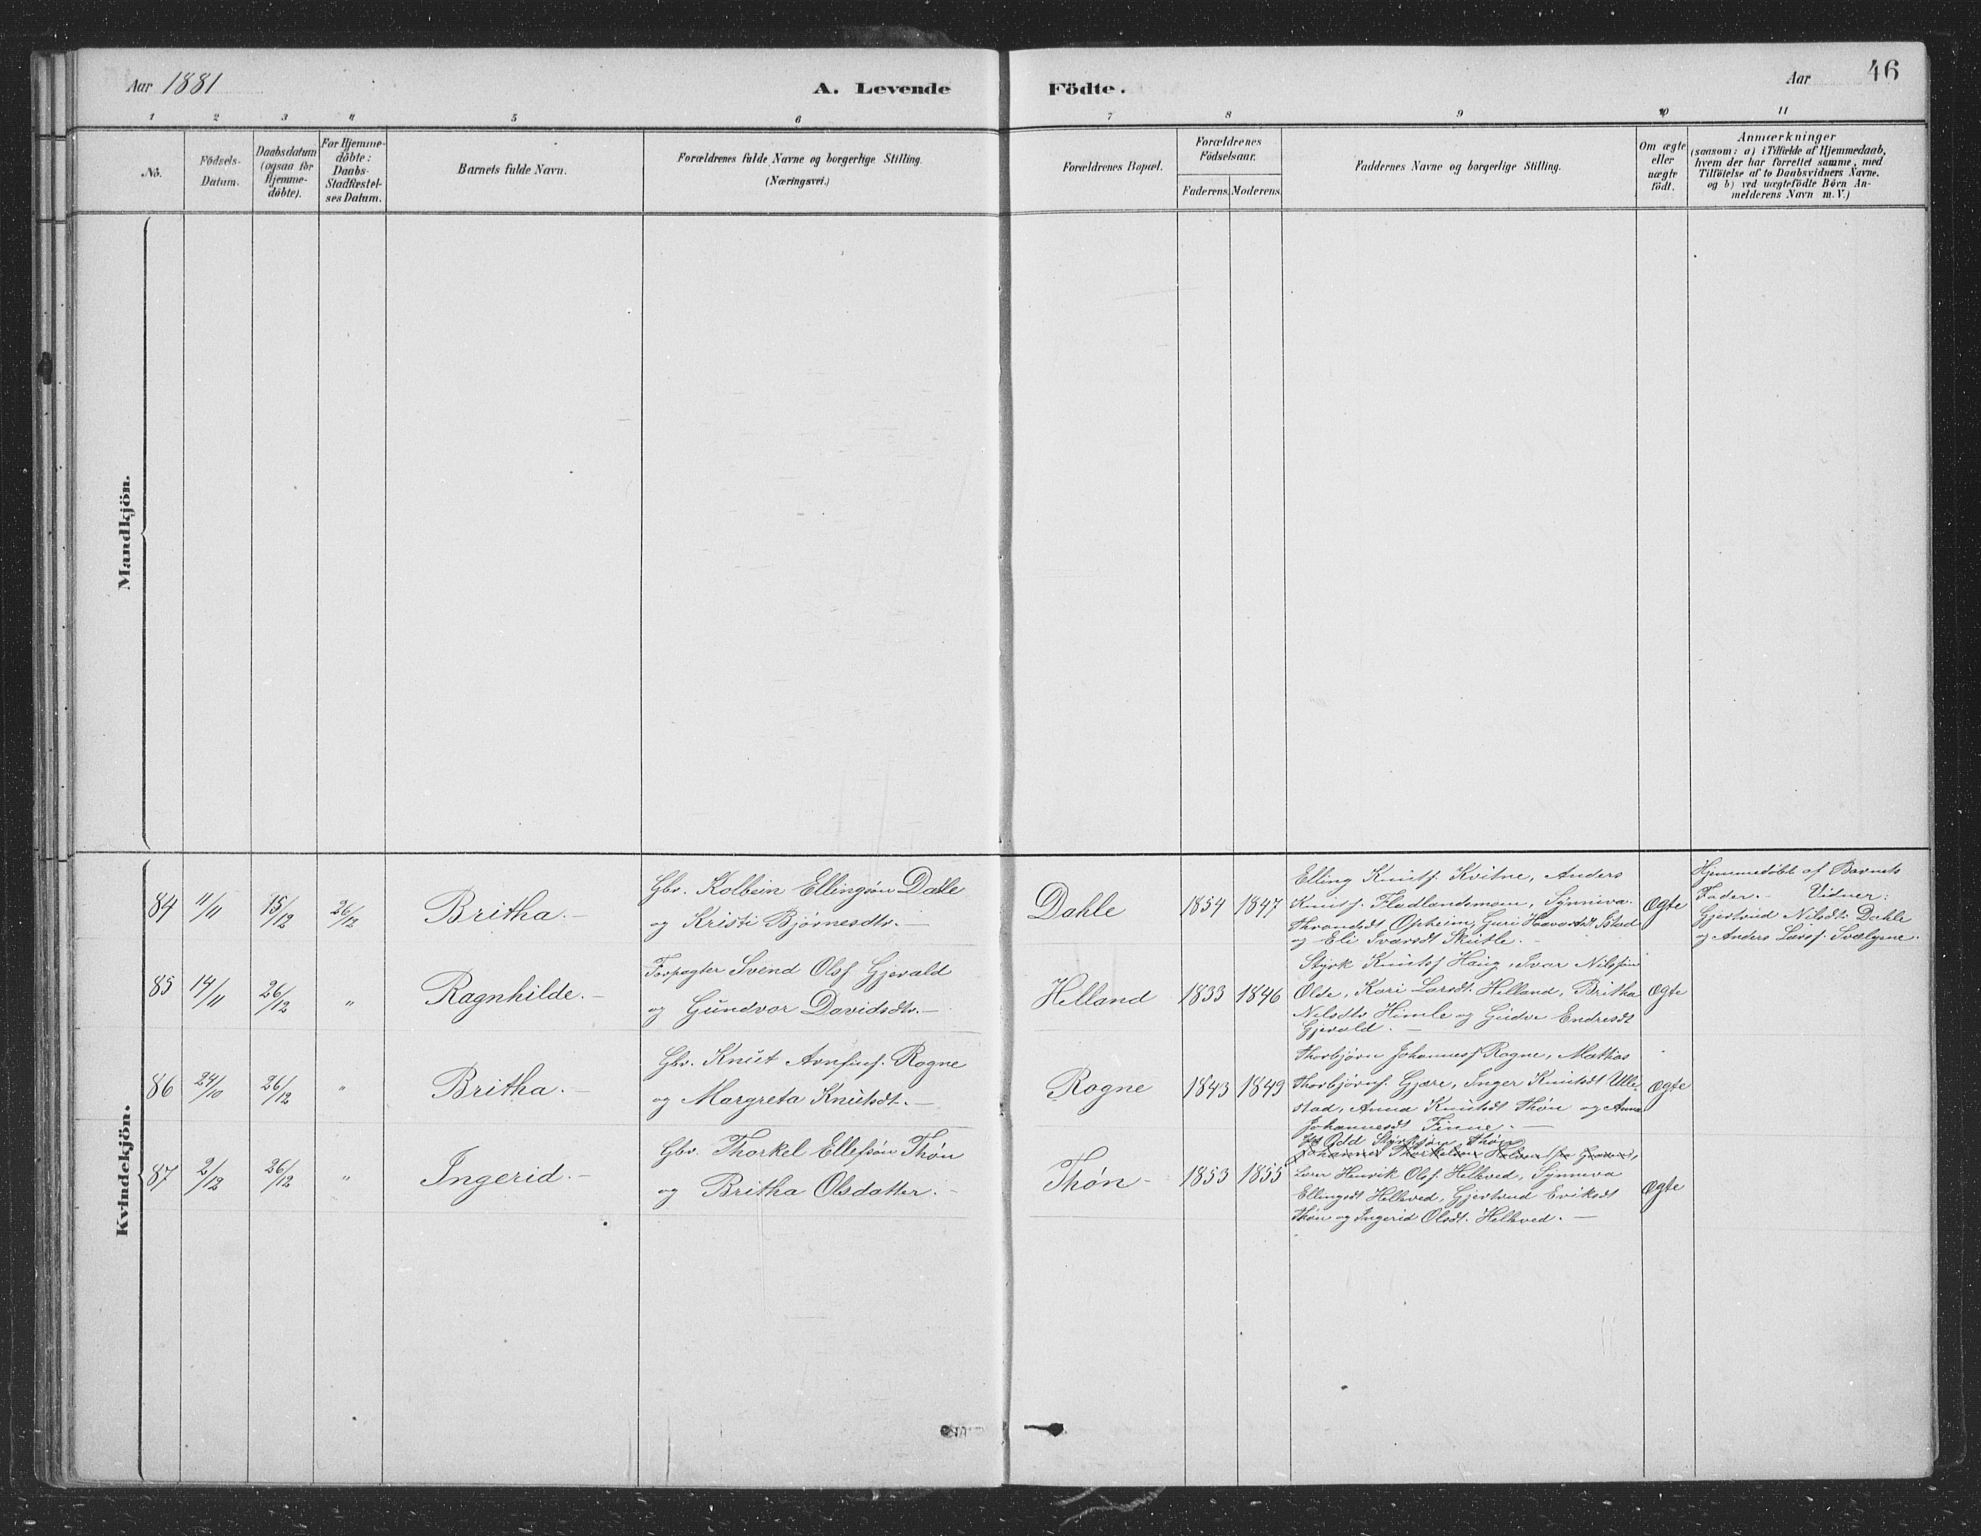 Aar 1881
A. Levende
Födte.
Aar
46
1 2 3 4 5 6 7 8 9 10 11
No.
Födsels-
Datum.
Daabsdatum
(ogsaa för
Hjemme-
döbte).
For Hjemme-
döbte:
Daabs-
Stadfæstel-
ses Datum.
Barnets fulde Navn.
Forældrenes fulde Navne og borgerlige Stilling.
(Næringsvei.)
Forældrenes Bopæl.
Forældrenes
Födselsaar.
Faderens. Moderens.
Faddernes Navne og borgerlige Stilling.
Om ægte
eller
uægte
født.
Anmærkninger
(saasom: a) i Tilfælde af Hjemmedaab,
hvem der har forrettet samme, med
Tilföielse af to Daabsvidners Navne.
og b) ved uægtefödte Börn An-
melderens Navn m. V.)
Mandkjön.
Kvindekjön.
84 11/11 15/12 26/12 Britha.-
Gbr. Kolbein Ellingsøn Dahle
og Kristi Bjørnesdtr.-
Dahle 1854 1847
Elling Knutsf. Kvitne, Anders
Knutsf. Fladlandsmoen, Synneva
Throndsdt Opheim, Guri Haavarsdt Istad
og Eli Ivarsdt Skutle.-
Ægte
Hjemmedøbt af Barnets
Fader.- Vidner:
Gjertrud Nilsdt. Dahle
og Anders Larsf.
85 14/11 26/12 " Ragnhilde.-
Forpagter Svend Olsf Gjerald
og Gundvor Davidsdtr.-
Helland 1833 1846
Styrk Knutsf Haug, Ivar Nilssøn
Olde, Kari Larsdt. Helland, Britha
Nilsdtr Himle og Gudve Endresdt
Gjerald.-
Ægte
86 24/10 26/12 " Britha.-
Gbr. Knut Arnfinsf. Rogne
og Margreta Knutsdt.-
Rogne 1843 1849
Thorbjørn Johannesf Rogne, Mathias
Thorbjørnsf. Gjære, Inger Knutsdt Ulle-
stad, Anna Knutsdt Thøn og Anna
Johannesdt Finne.-
Ægte
87 2/12 26/12 " Ingerid.-
Gbr. Thorkel Ellefsøn Thøn
og Britha Olsdatter.-
Thøn- 1853 1855
Odd Styrksøn Thøn
Johannes
Lærer Henrik Olsf. Helleved, Synneva
Ellingsdt Helleved, Gjertrud Eriksdt
Thøn og Ingerid Olsdt. Helleved.-
Ægte